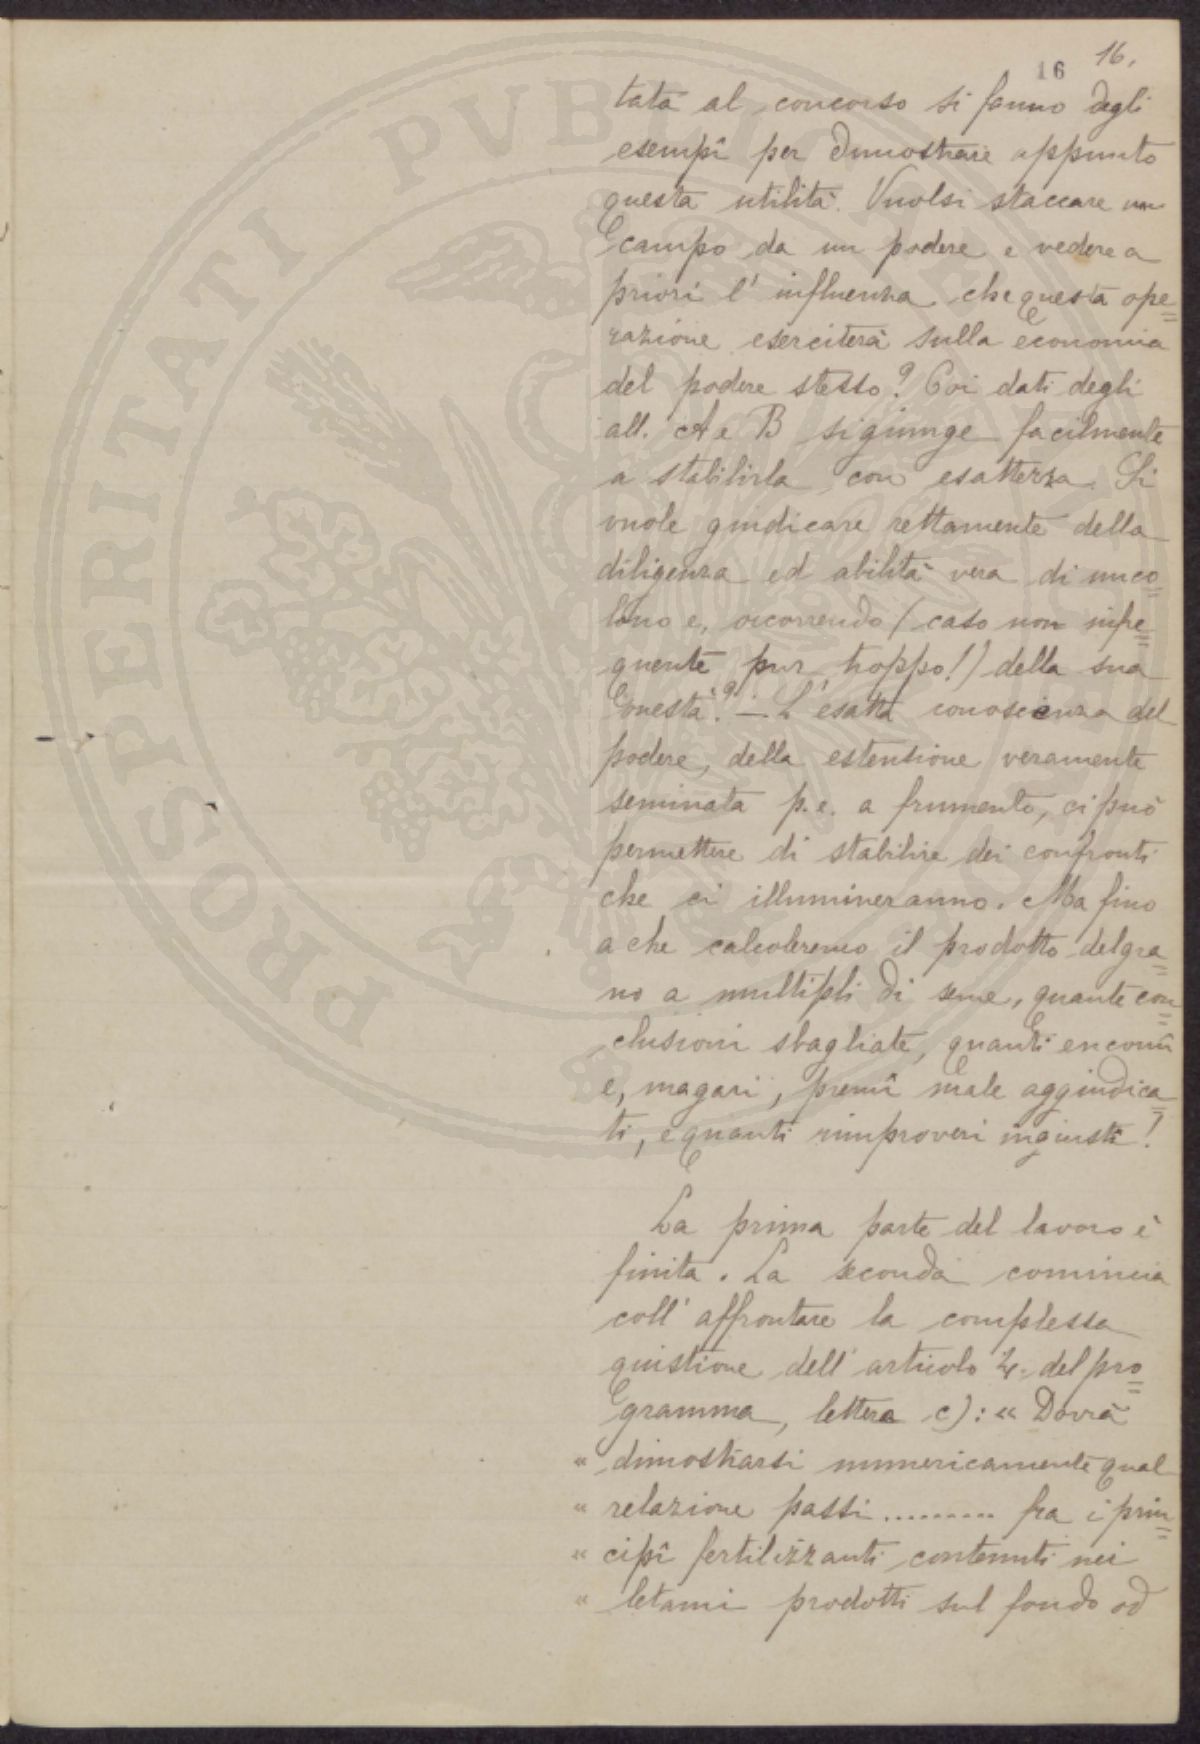 16 16.
tata al concorso si fanno degli
esempî per dimostrare appunto
questa utilità. Vuolsi staccare un
campo da un podere e vedere a
priori l'influenza che questa ope=
razione eserciterà sulla economia
del podere stesso? Coi dati degli
all. A e B si giunge facilmente
a stabilirla con esattezza. Si
vuole giudicare rettamente della
diligenza ed abilità vera di un co=
lono e, occorrendo (caso non infre=
quente pur troppo!) della sua
onestà? — L'esatta conoscienza del
podere, della estensione veramente
seminata p. e. a frumento, ci può
permettere di stabilire dei confronti
che ci illumineranno. Ma fino
a che calcoleremo il prodotto del gra=
no a multipli di seme, quante con=
clusioni sbagliate, quanti encomî
e, magari, premî male aggiudica=
ti, e quanti rimproveri ingiusti!
La prima parte del lavoro è
finita. La seconda comincia
coll'affrontare la complessa
quistione dell'articolo 4. del pro=
gramma, lettera c): « Dovrà
« dimostrarsi numericamente qual
« relazione passi .......... fra i prin=
« cipî fertilizzanti contenuti nei
« letami prodotti sul fondo od
PROSPERITATI PUBLICAE